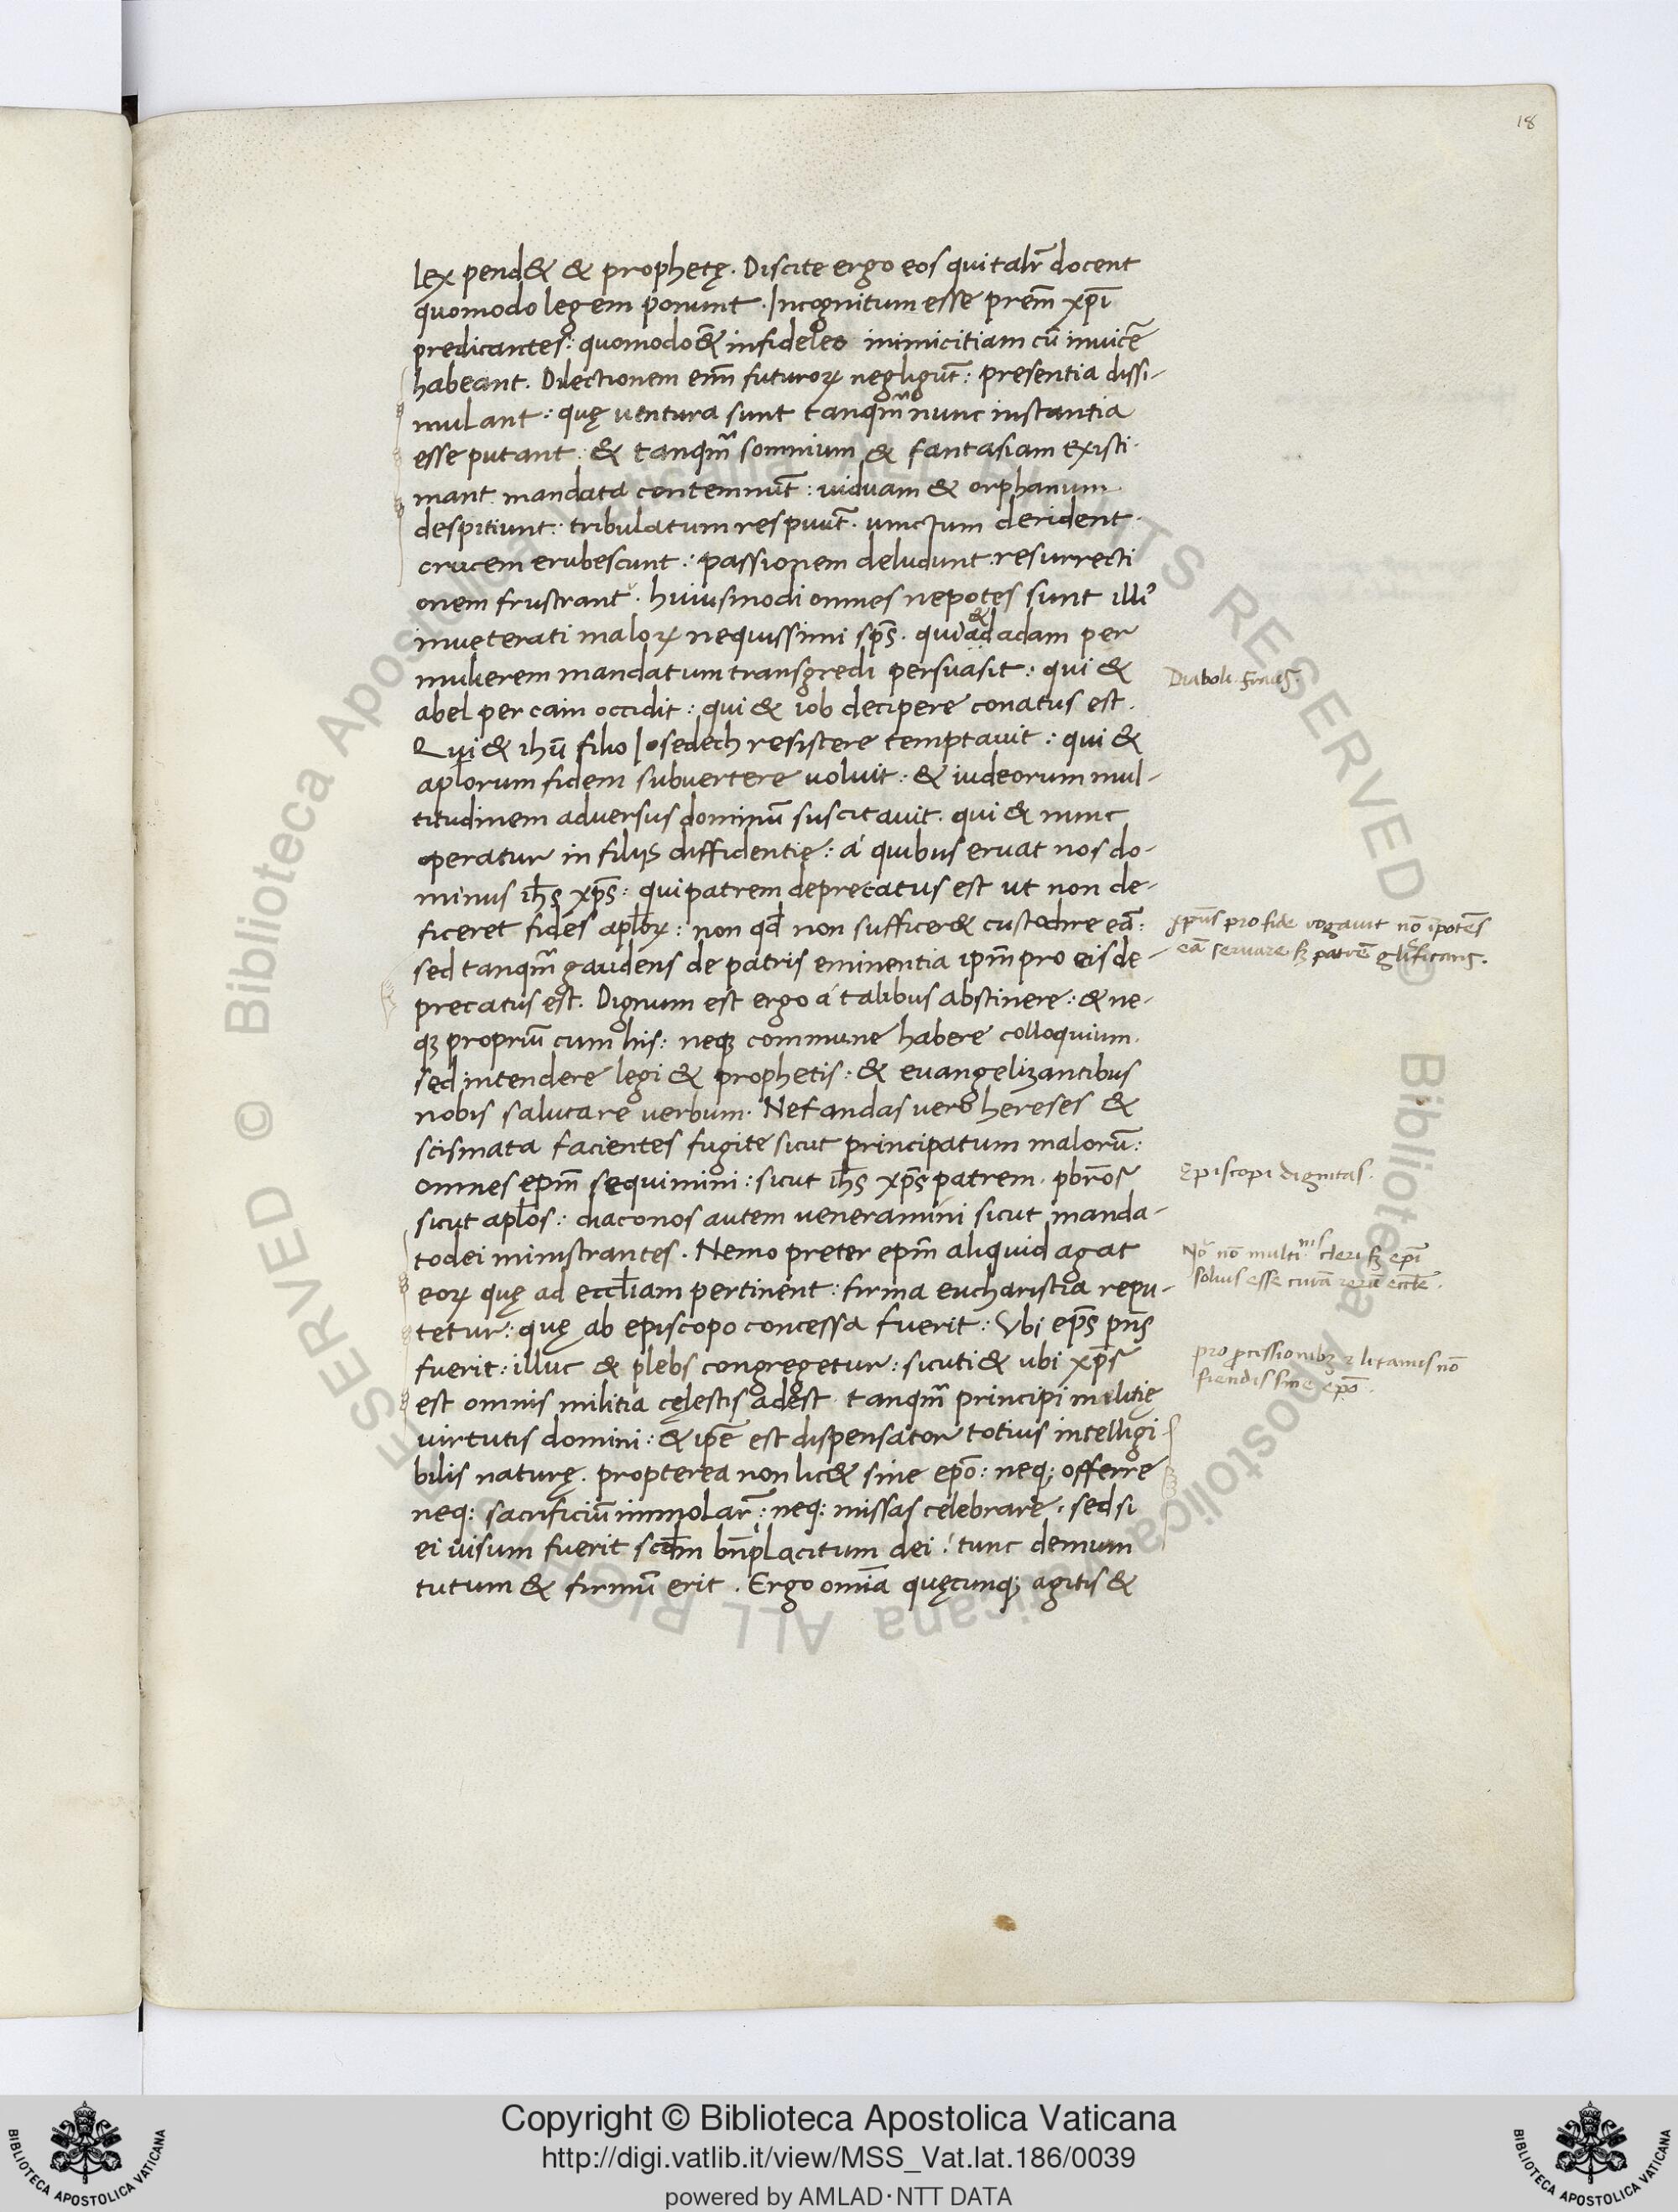 18
lex pend& & prophetę. Discite ergo eos qui talr̃ docent
quomodo legem ponunt. Incognitum esse prem̃ xpĩ
predicantes: quomodo &̃ infideles inimicitiam cũ inuicẽ
habeant. Dilectionem em̃ futuroꝝ negligũt: presentia dissi-
mulant: quę uentura sunt tanqm̃ nunc instantia
esse putant: & tanqm̃ somnium & fantasiam existi-
mant. mandata contemnũt: uiduam & orphanum
despitiunt: tribulatum respuũt. uinctum derident.
crucem erubescunt: passionem deludunt: resurrecti
onem frustrant. huiusmodi omnes nepotes sunt illiꝰ
inueterati maloꝝ nequissimi sps̃. qui & ad adam per
mulierem mandatum transgredi persuasit: qui &
abel per cain occidit: qui & iob decipere conatus est.
Qui & ihũ filio Iosedech resistere temptauit: qui &
apl̃orum fidem subuertere uoluit: & iudeorum mul-
titudinem aduersus dominũ suscitauit. qui & nunc
operatur in filijs diffidentię: á quibus eruat nos do-
minus ihs̃ xps̃: qui patrem deprecatus est ut non de-
ficeret fides apl̃oꝝ: non qđ non suffice&r custodire eã:
sed tanqm̃ gaudens de patris eminentia ipm̃ pro eis de-
precatus est. Dignum est ergo á talibus abstinere: & ne-
qꝫ propriũ cum his: neqꝫ commune habere colloquium.
sed intendere legi & prophetis: & euangelizantibus
nobis salutare uerbum. Nefandas uero hereses &
scismata facientes fugite sicut principatum malorũ:
omnes epm̃ sequimini: sicut ihs̃ xps̃ patrem. pbr̃os
sicut apl̃os: diaconos autem ueneramini sicut manda-
to dei ministrantes. Nemo preter epm̃ aliquid agat
eoꝝ quę ad eccl̃iam pertinent: firma eucharistia repu-
tetur: quę ab episcopo concessa fuerit: Vbi eps̃ pñs
fuerit: illuc & plebs congregetur: sicuti & ubi xps̃
est omnis militia cęlestis adest tanqm̃ principi militię
uirtutis domini: & ipẽ est dispensator totius intelligi-
bilis naturę. propterea non lic& sine epõ: neq; offerre
neq: sacrificiũ immolar̃: neq: missas celebrare. sed si
ei uisum fuerit scđm bñplacitum dei: tunc demum
tutum & firmũ erit. Ergo omĩa quęcunq; agitis &
Diaboli
xpũs pro fide rogauit nõ ĩpotẽs
eã seruare sꝫ patrẽ glificans.
Episcopi dignitas.
nõ multi cleri sꝫ epĩ
solius esse curã rerũ eccłe.
pro p̃cessionibꝫ ⁊ litaniis nõ
fiendis sine epõ.
© Biblioteca Apostolica Vaticana ALL RIGHTS RESERVED
© Biblioteca Apostolica Vaticana ALL RIGHTS RESERVED
BIBLIOTECA APOSTOLICA VATICANA
Copyright © Biblioteca Apostolica Vaticana
http://digi.vatlib.it/view/MSS_Vat.lat.186/0039
powered by AMLAD·NTT DATA
BIBLIOTECA APOSTOLICA VATICANA